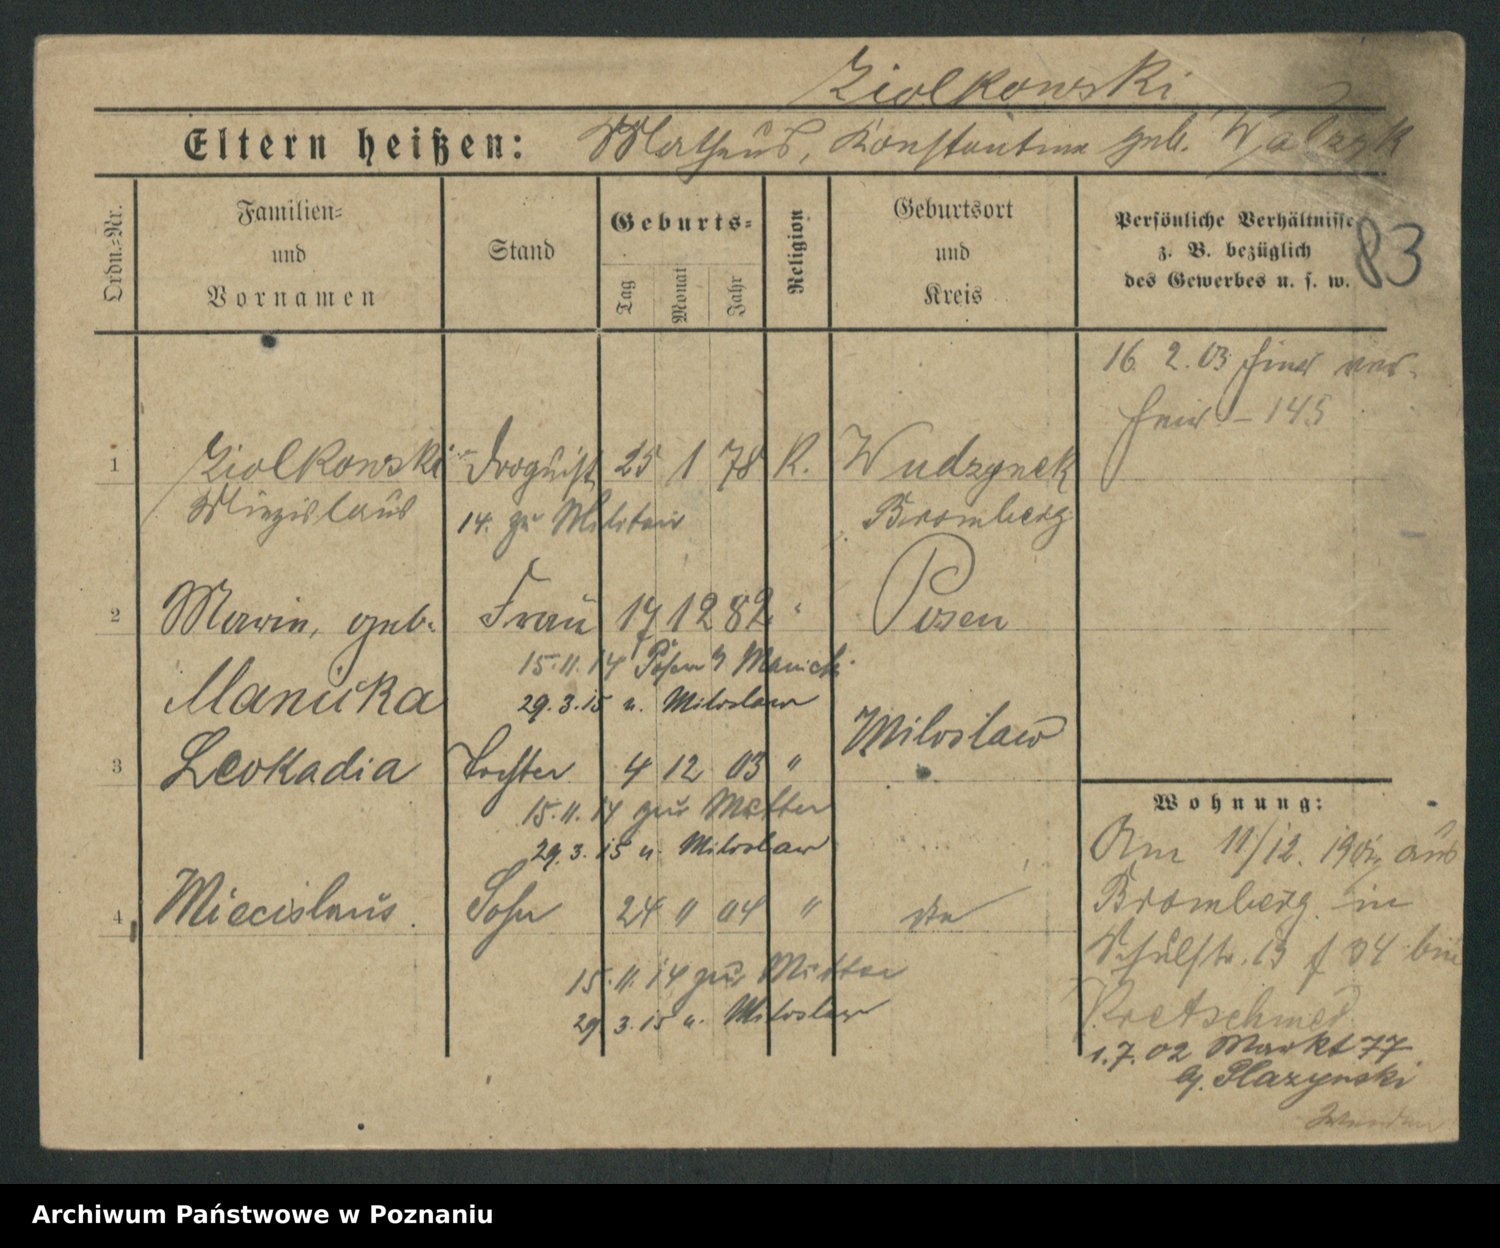 Ziolkowski
Eltern heißen: Matheus, Konstantina geb. Walzyk
Ordn.=Nr.
Familien=
und
Vornamen
Stand
Geburts=
Tag
Monat
Jahr
Religion
Geburtsort
und
Kreis
Persönliche Verhältnisse
z. B. bezüglich
des Gewerbes u. s. w.
83
16. 2. 03
145
1 Ziolkowski Droguist 25 1 78 K. Wudzynek
Miezislaus 14. zu Militair Bromberg
2 Maria, geb. Frau 17 12 82 " Posen
15.11.14 Posen
Manicka 29.3.15 n. Miloslaw
3 Leokadia Tochter 4 12 03 " Miloslaw
15.11.14 zur Mutter
29.3.15 n. Miloslaw
4 Miecislaus. Sohn 24 " 04 "
15.11.14 zur Mutter
29.3.15 n. Miloslaw
Wohnung:
Am 11/12. 1901 aus
Bromberg in
Schulstr. 13 bei
Kretschmer
1.7.02 Markt 77
Glazynski
Wenden